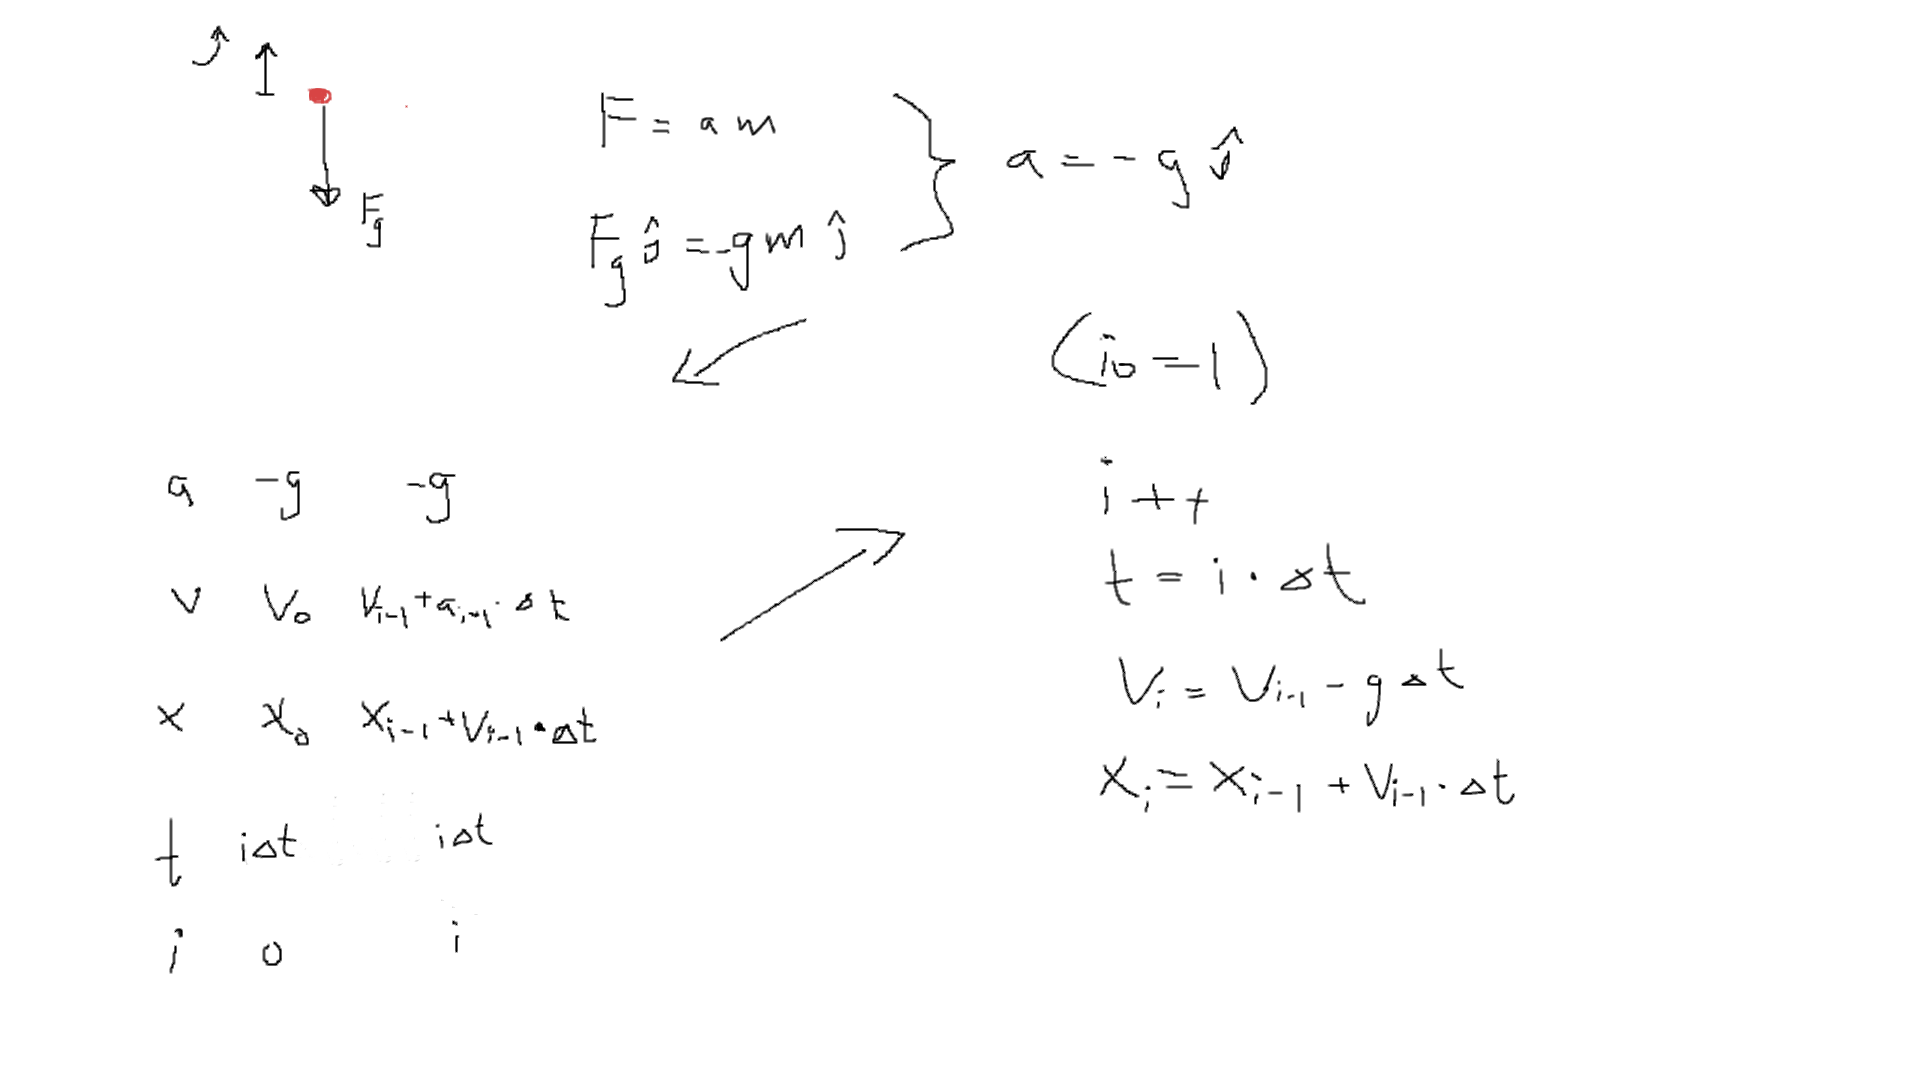 F_g
F = a m
F_g ĵ = -g m ĵ
a = - g ĵ
(i₀ = 1)
a -g -g
v v₀ v_{i-1} + a_{i-1} · Δt
x x₀ x_{i-1} + v_{i-1} · Δt
t iΔt iΔt
i 0 i
i++
t = i · Δt
v_i = v_{i-1} - g Δt
x_i = x_{i-1} + v_{i-1} · Δt